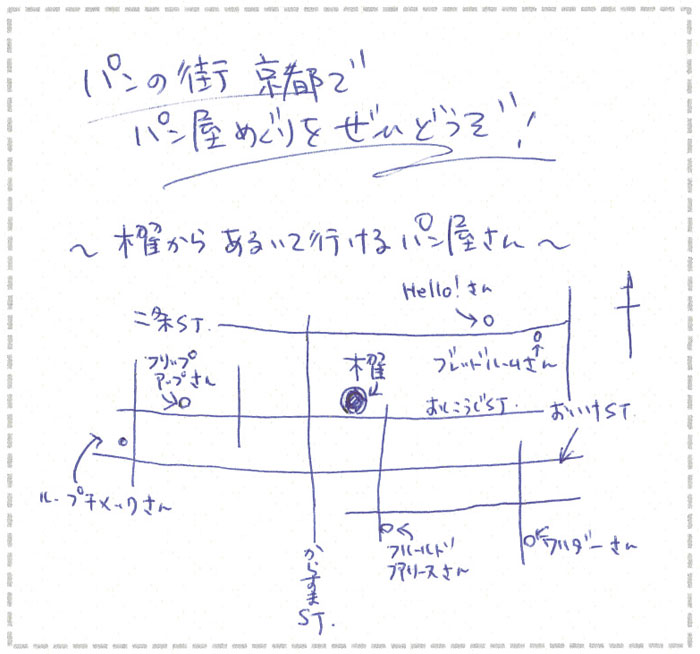 パンの街 京都で
パン屋めぐりをぜひどうぞ!
～ 櫂から あるいて行ける パン屋さん ～
Hello!さん
二条ST.
フリップ
アップさん
櫂
ブレッドルームさん
おしこうじST.
おいけST.
ル・プチメックさん
フルールド
ファリーヌさん
ワルダーさん
からすま
ST.